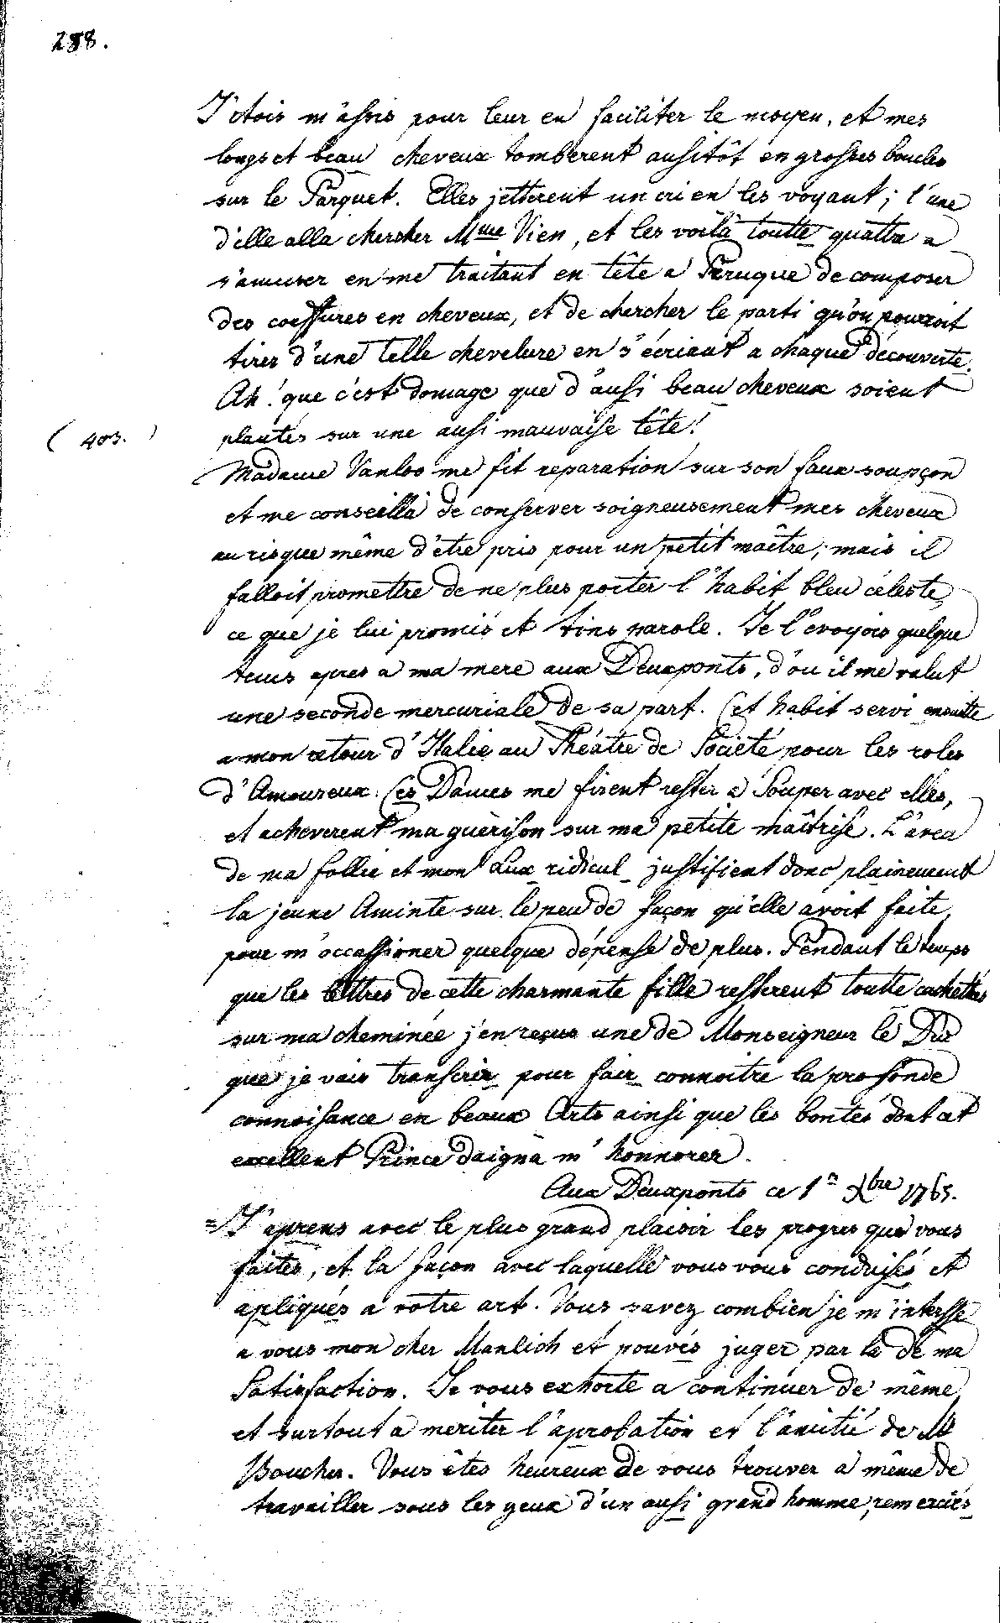 288.
J'etois m'assis pour leur en faciliter le moyen, et mes
longs et beau cheveux tomberent ausitôt en grosses boucles
sur le Parquet. Elles jetterent un cri en les voyant; l'une
d'elle alla chercher Mme Vien, et les voilà toutte quattre a
s'amuser en me traitant en tête a Peruque de composer
des coeffures en cheveux, et de chercher le parti qu'on pourroit
tirer d'une telle chevelure en s'écriant a chaque découverte.
Ah! que c'est domage que d'aussi beau cheveux soient
plantés sur une ausi mauvaise tête!
( 403. )
Madame Vanloo me fit reparation sur son faux soupçon
et me conseilla de conserver soigneusement mes cheveux
au risque même d'être pris pour un petit maître; mais il
falloit promettre de ne plus porter l'habit bleu céleste,
ce que je lui promis et tins parole. Je l'envoyois quelque
tems apres a ma mere aux Deuxponts, d'ou il me valut
une seconde mercuriale de sa part. Cet habit servi ensuitte
a mon retour d'Italie au Théatre de Societé pour les roles
d'Amoureux. Ces Dames me firent rester a Souper avec elles,
et acheverent ma guèrison sur ma petite maîtrise. L'aveu
de ma follie et mon Lux ridicul justifient donc plainement
la jeune Aminte sur le peu de façon qu'elle avoit faite,
pour m'occassioner quelque dépense de plus. Pendant le temps
que les lettres de cette charmante fille resterent toutte cachettés
sur ma cheminée j'en reçus une de Monseigneur le Duc
que je vais transcrir pour fair connoitre la profonde
connoisance en beaux Arts ainsi que les bontés dont cet
excellent Prince daigna m'honnorer.
Aux Deuxponts ce 1r Xbre 1765.
=J'aprens avec le plus grand plaisir les progres que vous
faites, et la façon avec laquelle vous vous conduisés et
apliqués a votre art. Vous savez combien je m'interesse
a vous mon cher Manlich et pouvés juger par la de ma
Satisfaction. Je vous exhorte a continuer de même,
et surtout a meriter l'aprobation et l'amitié de M
Boucher. Vous êtes heureux de vous trouver a même de
travailler sous les yeux d'un ausi grand homme, remerciés